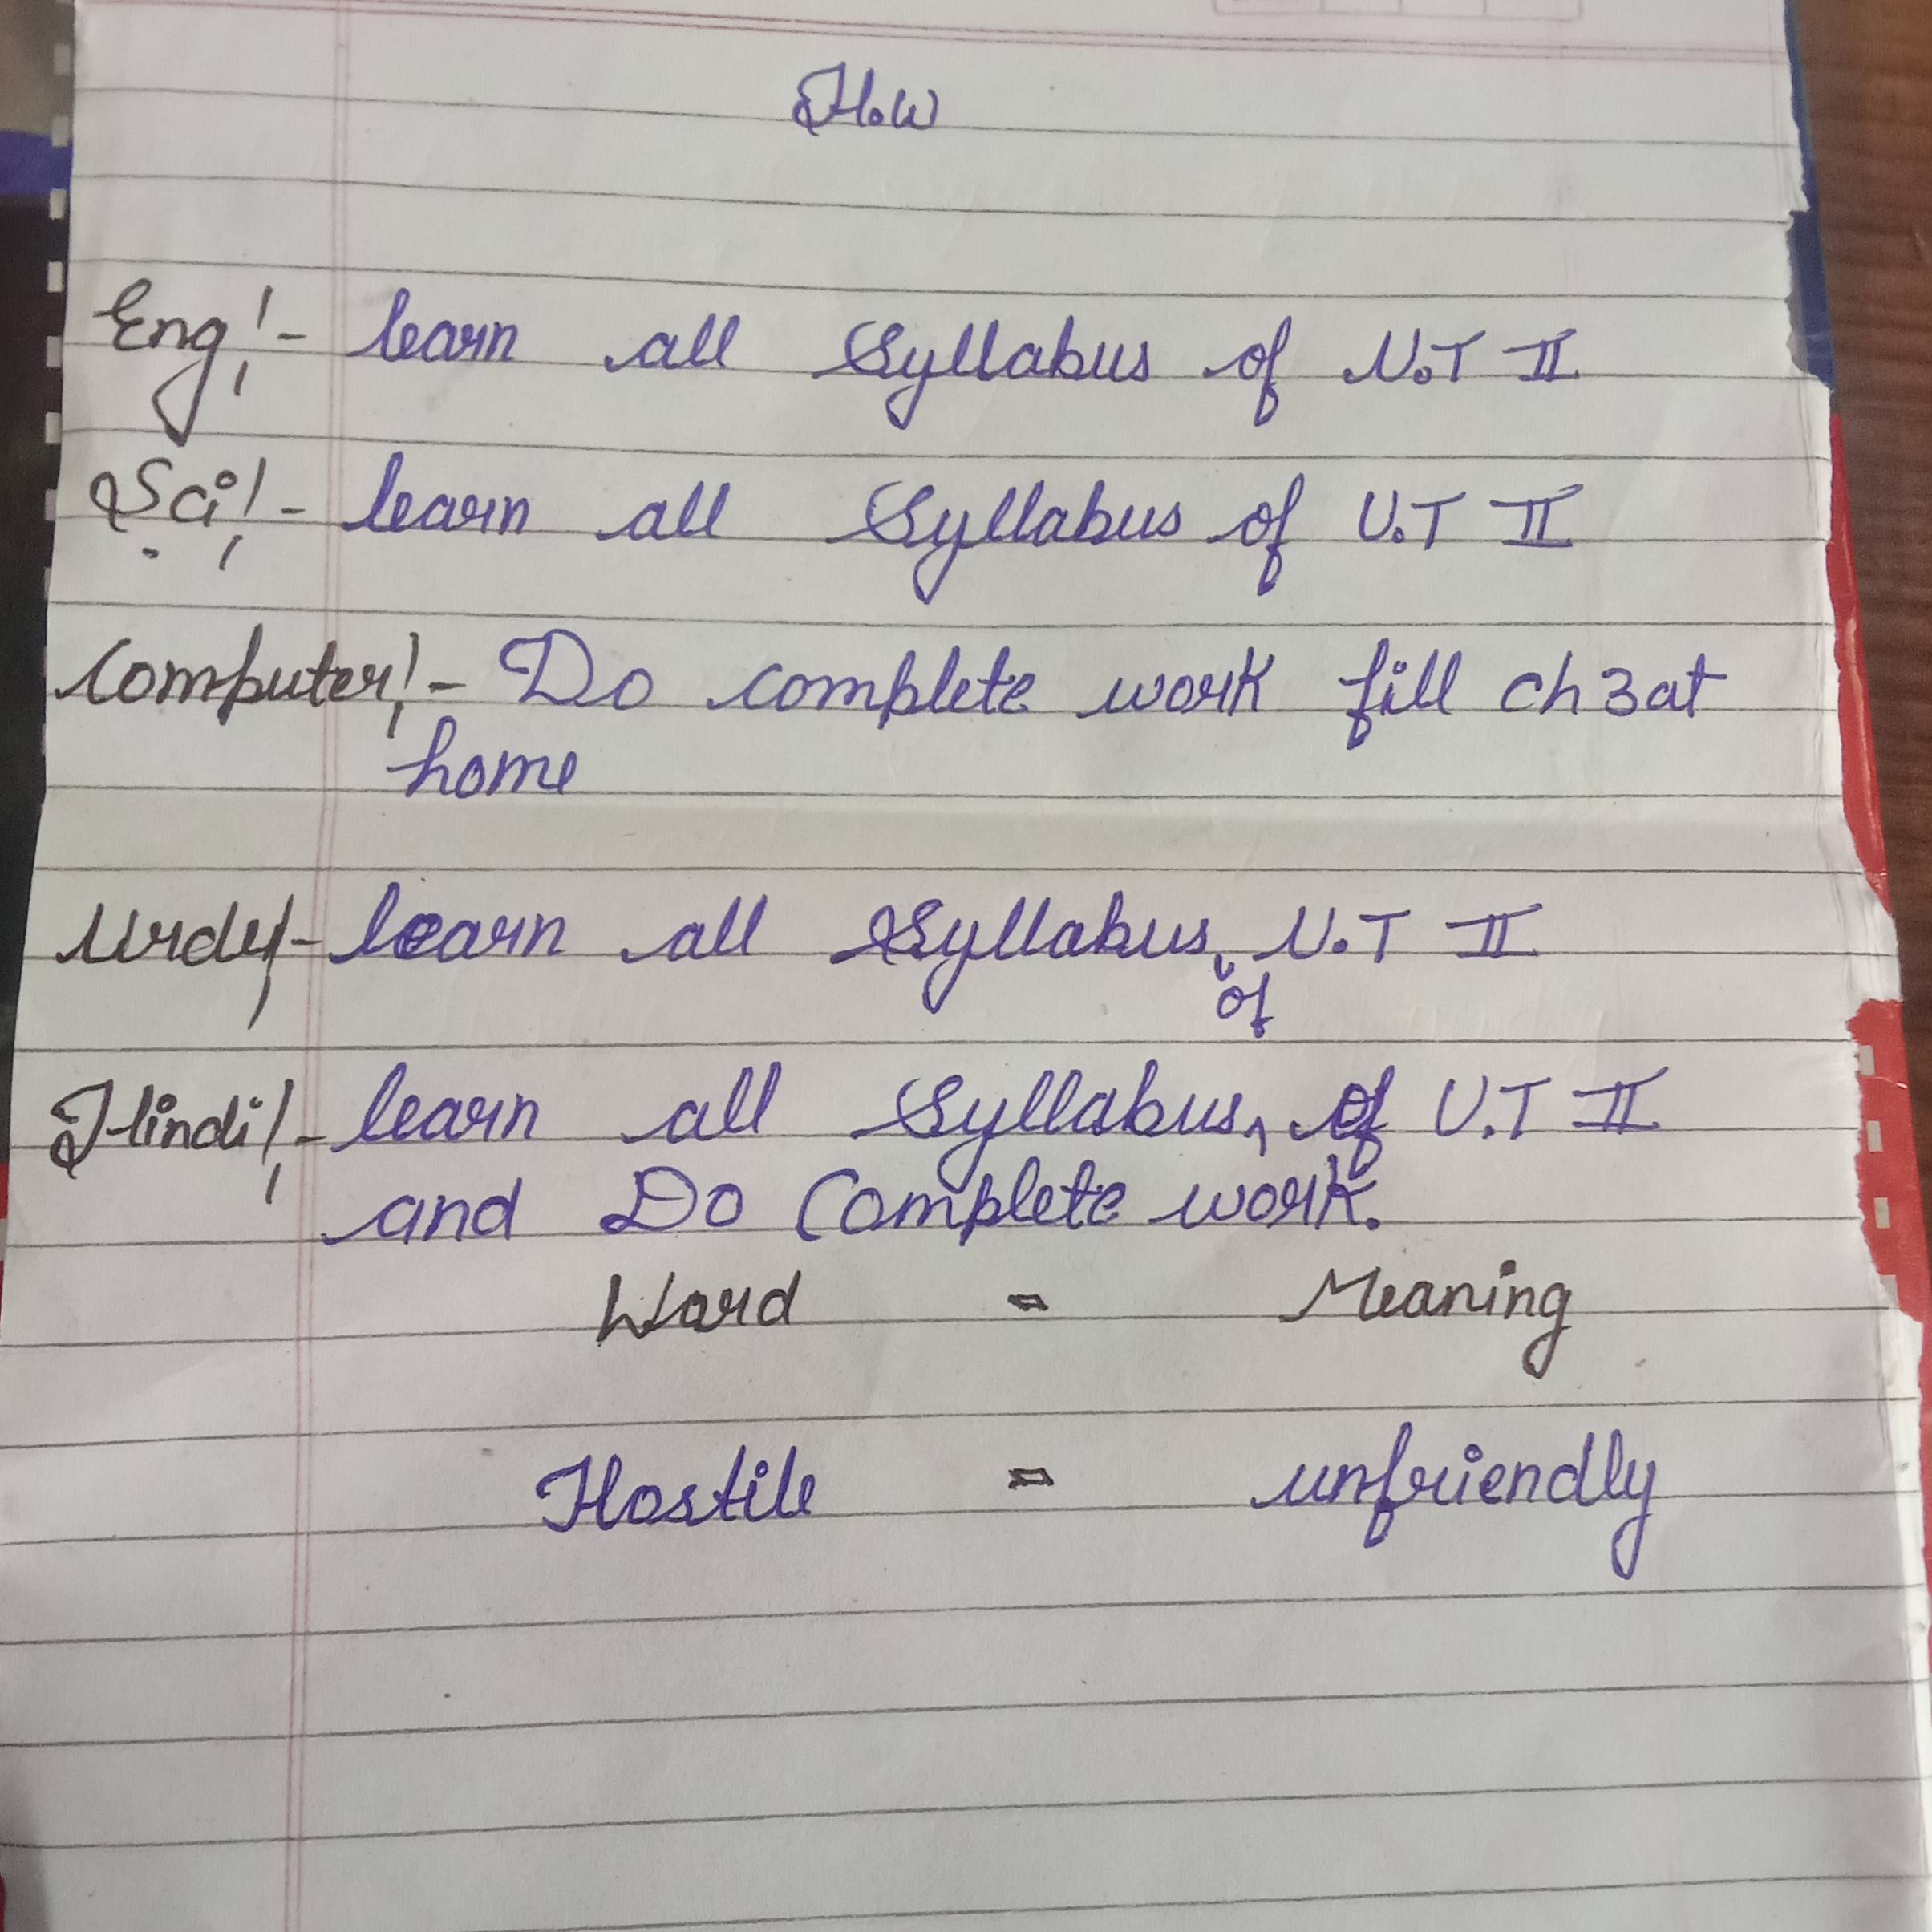 H.W
Eng:- learn all Syllabus of U.T II
Sci:- learn all Syllabus of U.T II
Computer:- Do complete work fill ch 3 at
home
Urdu:- learn all Syllabus of U.T II
Hindi:- learn all Syllabus of U.T II
and Do Complete work.
Word = Meaning
Hostile = unfriendly